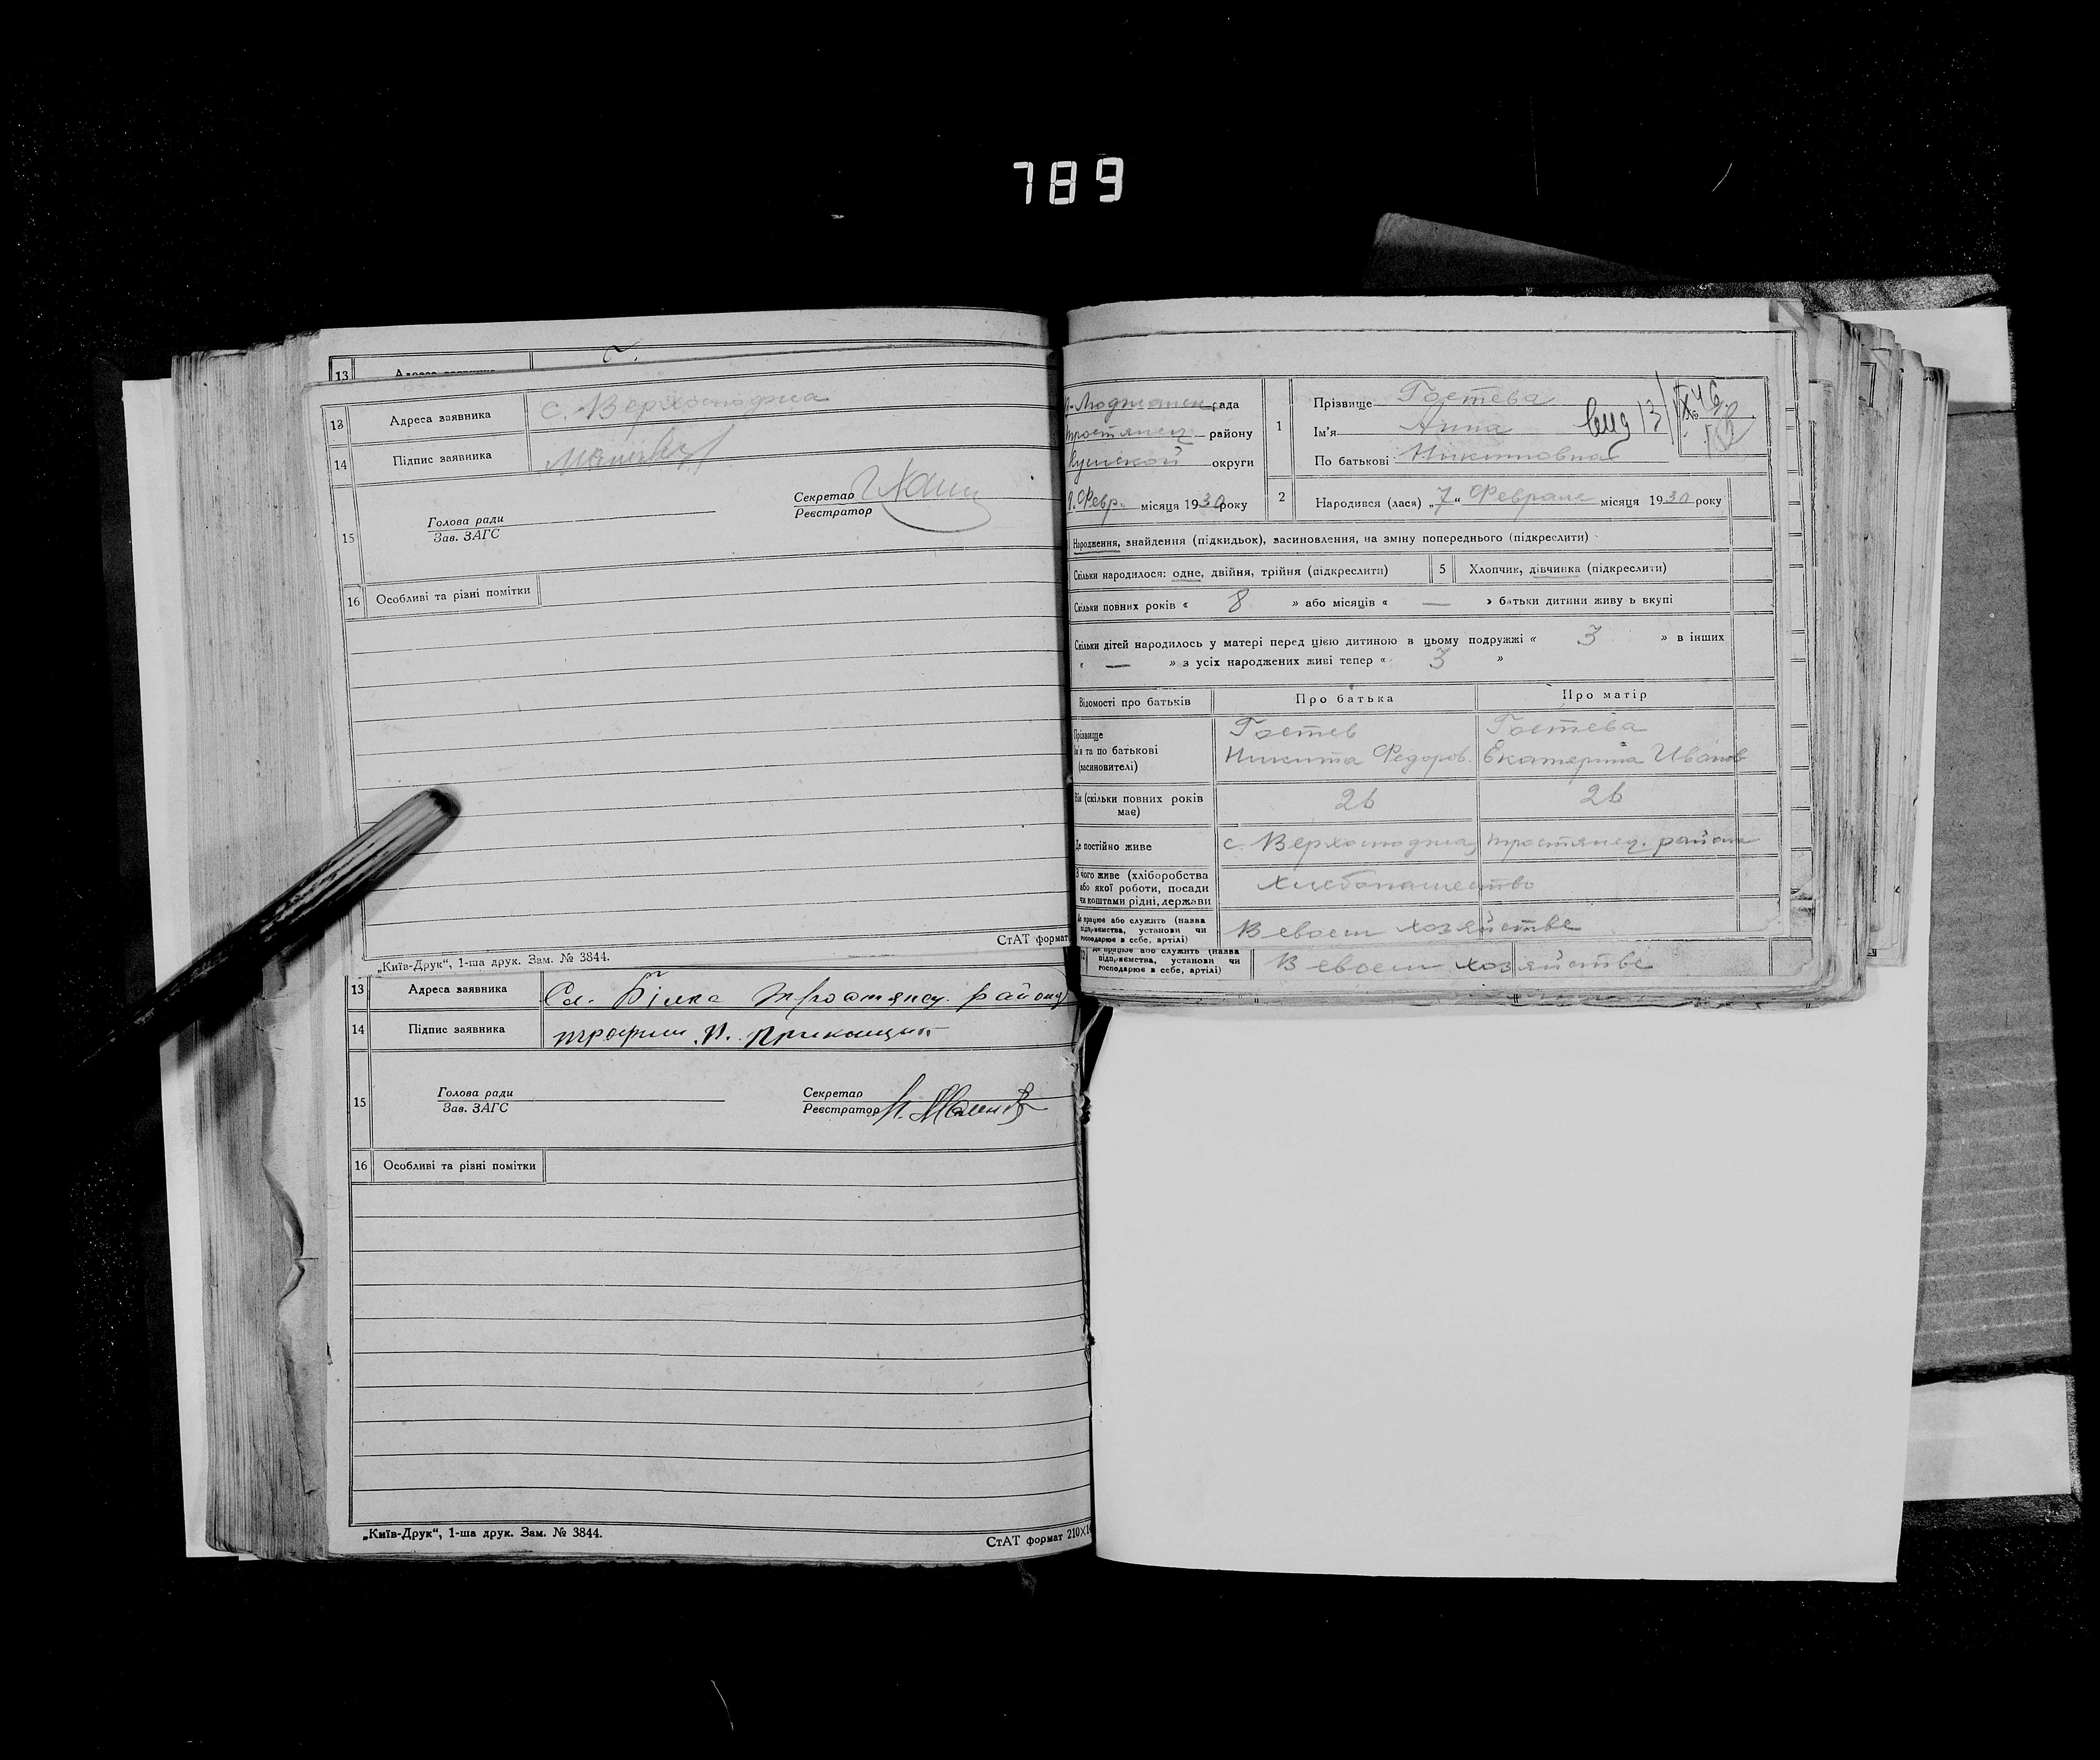 789
13 Адреса заявника
13 Адреса заявника с. Верхолюджа
14 Підпис заявника
15 Голова ради
Зав. ЗАГС
Секретар
Реєстратор
16 Особливі та різні помітки
СтАТ формат
„Київ-Друк“, 1-ша друк. Зам. № 3844.
13 Адреса заявника Сл. Білка Тростянец. району
14 Підпис заявника Трофим П.
15 Голова ради
Зав. ЗАГС
Секретар
Реєстратор
16 Особливі та різні помітки
„Київ-Друк“, 1-ша друк. Зам. № 3844.
СтАТ формат 210×1
рада
Тростянец району
округи
Февр. місяця 1930 року
1 Прізвище Гостева
Ім'я Анна
По батькові Никитовна
№ 46
2 Народився (лася) „7“ Февраля місяця 1930 року
Народження, знайдення (підкидьок), засиновлення, на зміну попереднього (підкреслити)
Скільки народилося: одне, двійня, трійня (підкреслити) 5 Хлопчик, дівчинка (підкреслити)
Скільки повних років « 8 » або місяців « — » батьки дитини живу ь вкупі
Скільки дітей народилось у матері перед цією дитиною в цьому подружжі « 3 » в інших
« — » з усіх народжених живі тепер « 3 »
Відомості про батьків Про батька Про матір
Прізвище Гостев Гостева
Ім'я та по батькові Никита Федоров. Екатерина Иванов
(засиновителі)
Вік (скільки повних років має) 26 26
Де постійно живе с. Верхолюджа, Тростянец. района
З чого живе (хліборобства
або якої роботи, посади
чи коштами рідні, держави хлебопашество
Де працює або служить (назва
підприємства, установи чи
господарює в себе, артілі) В своем хозяйстве
Де працює або служить (назва
підприємства, установи чи
господарює в себе, артілі) В своем хозяйстве